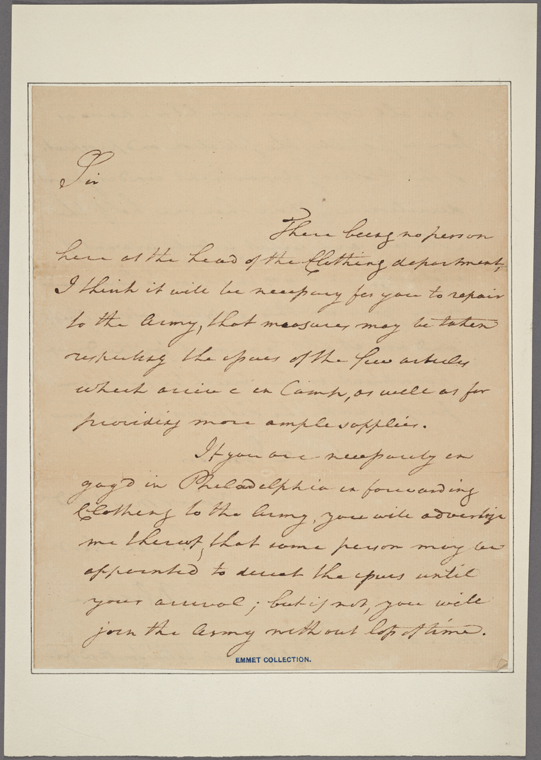 Sir
There being no person
here at the head of the Clothing department,
I think it will be necessary for you to repair
to the Army, that measures may be taken
respecting the issues of the few articles
which arrive in Camp, as well as for
providing more ample supplies.
If you are necessarily en
gag'd in Philadelphia in forwarding
Clothing to the Army, you will advertise
me thereof, that some person may be
appointed to direct the issues until
your arrival; but if not, you will
join the Army without loss of time.
EMMET COLLECTION.